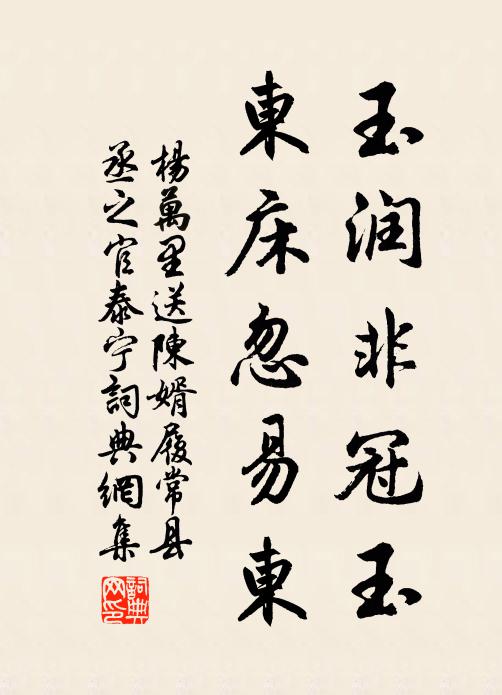 玉润非冠玉
東床忽易東
楊萬里送陳婿履常县
丞之官泰宁詞典網集
詞典
网印